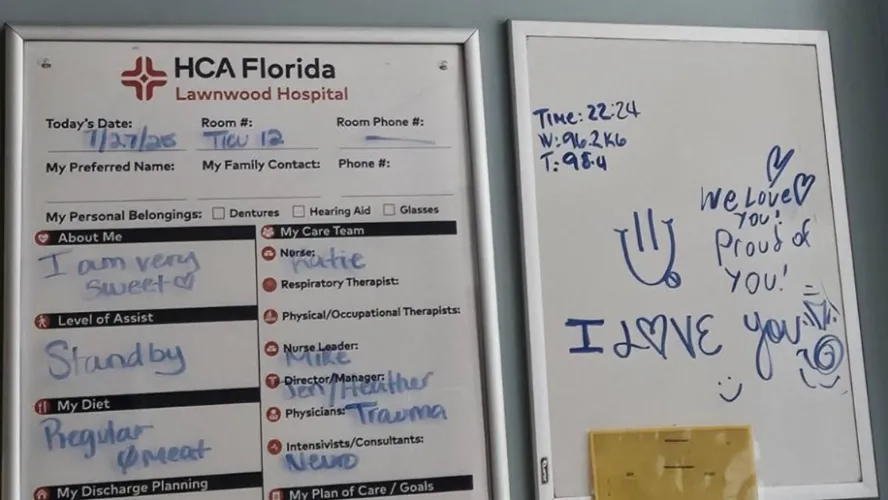 HCA Florida
Lawnwood Hospital
Today's Date: Room #: Room Phone #:
7/27/25 TICU 12
My Preferred Name: My Family Contact: Phone #:
My Personal Belongings: Dentures Hearing Aid Glasses
About Me
I am very
sweet
Level of Assist
Standby
My Diet
Regular
φ meat
My Discharge Planning
My Care Team
Nurse:
Katie
Respiratory Therapist:
Physical/Occupational Therapists:
Nurse Leader:
Mike
Director/Manager:
Jen/Heather
Physicians: Trauma
Intensivists/Consultants:
Neuro
My Plan of Care / Goals
Time: 22:24
W: 96.2KG
T: 98.4
We Love
YOU!
Proud of
YOU!
I LOVE you